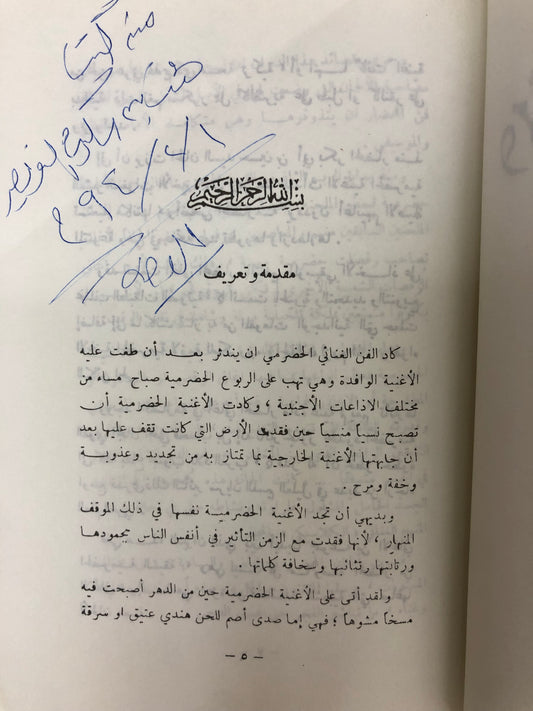 من كتب
بسم الله الرحمن الرحيم
مقدمة وتعريف
كاد الفن الغنائي الحضرمي ان يندثر بعد أن طغت عليه
الأغنية الوافدة وهي تهب على الربوع الحضرمية صباح مساء من
مختلف الاذاعات الأجنبية ، وكادت الأغنية الحضرمية أن
تصبح نسياً منسياً حين فقدت الأرض التي كانت تقف عليها بعد
أن جابهتها الأغنية الخارجية بما تمتاز به من تجديد وعذوبة
وخفة ومرح .
وبديهي أن تجد الأغنية الحضرمية نفسها في ذلك الموقف
المنهار ، لأنها فقدت مع الزمن التأثير في أنفس الناس بجمودها
ورتابتها رتئائبها وسخافة كلماتها .
ولقد أتى على الأغنية الحضرمية حين من الدهر أصبحت فيه
مسخاً مشوهاً ؛ فهي إما صدى أصم للحن هندي عتيق او سرقة
– ٥ –